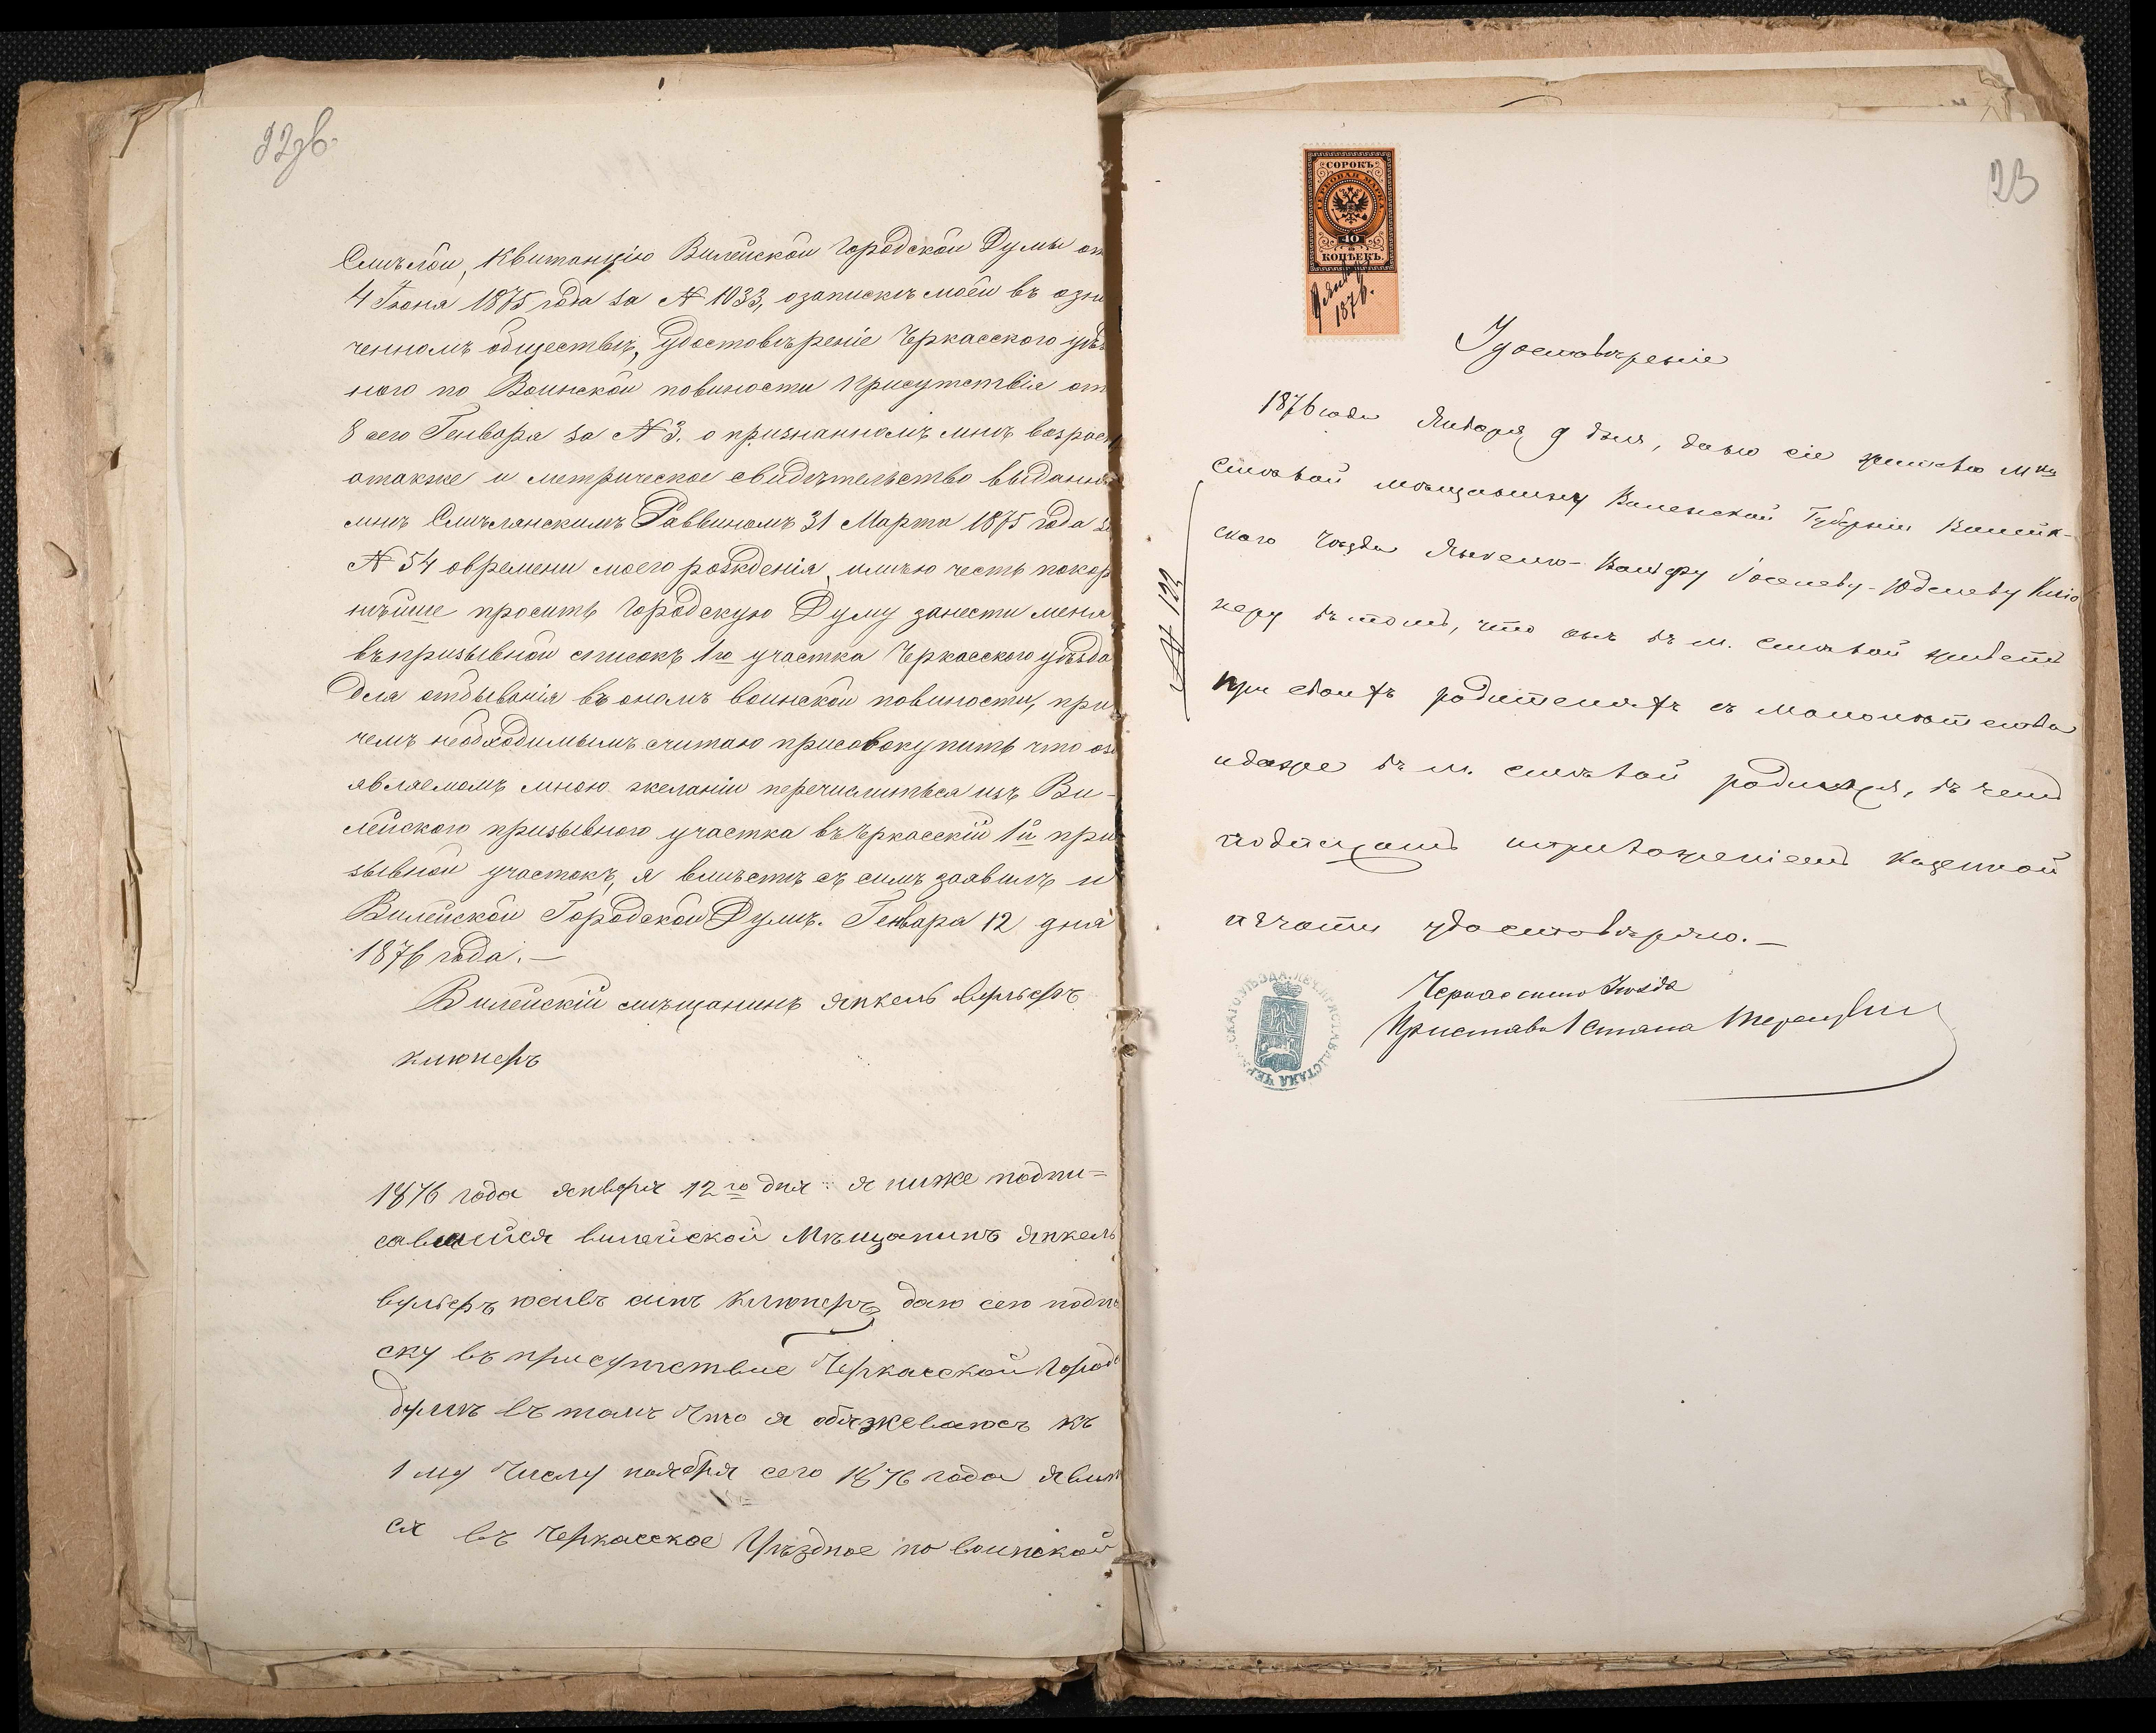 92 зв.
Смѣлой, Квитанцію Вилейской Городской Думы от
4 Іюня 1875 года за № 1033, о запискѣ моей въ озна
ченномъ обществѣ, Удостовѣреніе Черкасского уѣзд
ного по Воинской повиности Присутствія от
8 сего Генваря за № 3. о признанномъ мнѣ возрас
а также и метрическое свидѣтельство выданно
мнѣ Смѣлянскимъ Раввиномъ 31 Марта 1875 года за
№ 54 о времени моего рожденія, имѣю честь покор
нѣйше просить Городскую Думу занести меня
въ призывной списокъ 1го участка Черкасского уѣзда
для отбыванія въ ономъ воинской повиности, при
чемъ необходимымъ считаю присовокупить что о за
являемомъ мною желаніи перечислиться изъ Ви-
лейского призывного участка въ Черкасскій 1й при
зывной участокъ, я вмѣстѣ съ симъ заявилъ и
Вилейской Городской Думѣ. Генваря 12 дня
1876 года. —
Вилейскій мѣщанинъ Янкель Вульфъ
Клюнеръ
1876 года января 12го дня я ниже подпи=
савшийся вилейской Мѣщанинъ Янкель
вульфъ юсивъ синъ Клюнеръ даю сею подпи
ску въ присутствие Черкасской Город
думѣ въ томъ что я обяжеваюсъ къ
1 му числу ноября сего 1876 года явит
ся въ Черкасское Уѣздное по воинской
23
СОРОКЪ
ГЕРБОВАЯ МАРКА
40
КОПѢЕКЪ.
9 Янв
1876.
Удостовѣреніе
1876 года Января 9 дня, даю сіе жителю Мка
Смѣлой мѣщанину Виленской Губерніи Вилейк-
ского Уѣзда Янкелю-Вольфу Іоселеву-Юделеву Клю
неру въ томъ, что онъ въ м. Смѣлой живетъ
при своихъ родителяхъ съ малолѣтства
и даже въ м. Смѣлой родился, въ чемъ
подписомъ и приложеніемъ Казенной
печати удостовѣряю. —
№ 122
Черкасского Уѣзда
Приставъ 1 Стана